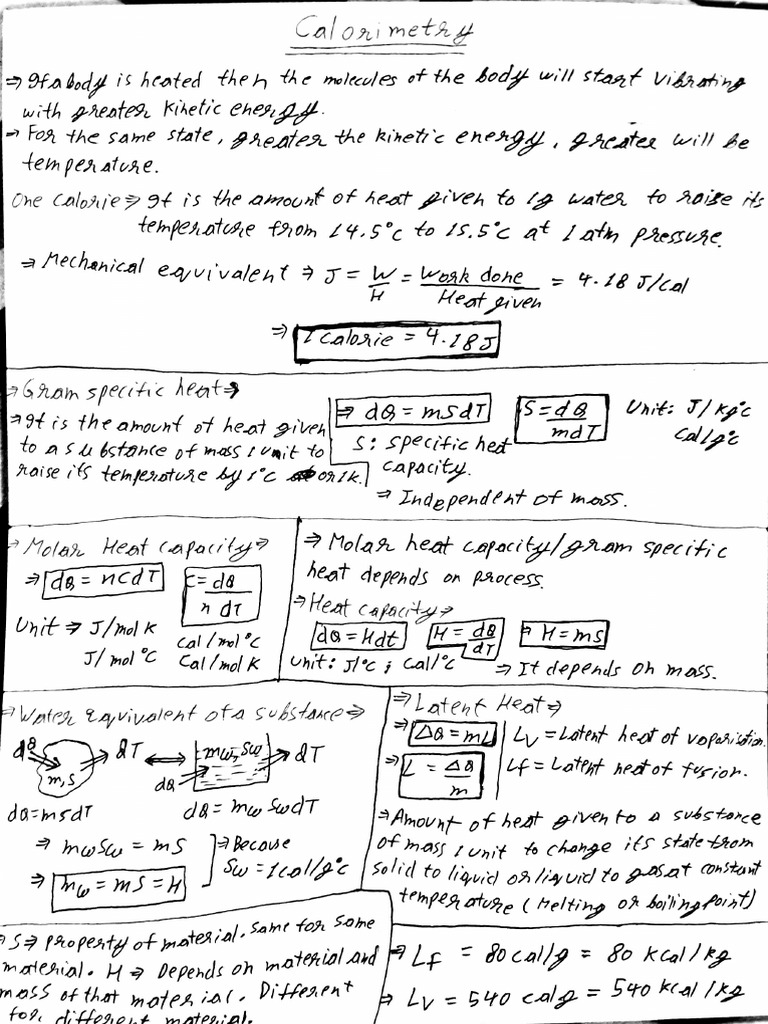 Calorimetry
⇒ If a body is heated then the molecules of the body will start vibrating
with greater kinetic energy.
→ For the same state, greater the kinetic energy, greater will be
temperature.
One calorie ⇒ It is the amount of heat given to 1g water to raise its
temperature from 14.5°c to 15.5°c at 1 atm pressure.
⇒ Mechanical equivalent ⇒ J = W/H = Work done/Heat given = 4.18 J/cal
⇒ 1 calorie = 4.18 J
⇒ Gram specific heat ⇒
⇒ It is the amount of heat given
to a substance of mass 1 unit to
raise its temperature by 1°c or 1k.
⇒ dQ = msdT
S = dQ/mdT
Unit: J/kg°c
Cal/g°c
S: specific heat
capacity.
⇒ Independent of mass.
→ Molar Heat capacity ⇒
⇒ dQ = ncdT
C = dQ/n dT
Unit ⇒ J/mol k
Cal/mol°c
J/mol°C
Cal/mol k
⇒ Molar heat capacity/gram specific
heat depends on process.
⇒ Heat capacity ⇒
dQ = Hdt
H = dQ/dT
⇒ H = ms
Unit: J/°c ; Cal/°c
⇒ It depends on mass.
⇒ Water equivalent of a substance ⇒
dQ
m, S
⇒ dT
mw, Sw
dQ
⇒ dT
dQ = msdT
dQ = mw sw dT
⇒ mw sw = ms
⇒ mw = ms = H
⇒ Because
Sw = 1 cal/g°c
⇒ Latent Heat ⇒
⇒ ΔQ = mL
Lv = Latent heat of vaporisation.
⇒ L = ΔQ/m
Lf = Latent heat of fusion.
⇒ Amount of heat given to a substance
of mass 1 unit to change its state from
solid to liquid or liquid to gas at constant
temperature (Melting or boiling point)
⇒ S ⇒ property of material. Same for same
material. H ⇒ Depends on material and
mass of that material. Different
for different material.
⇒ Lf = 80 cal/g = 80 kcal/kg
⇒ Lv = 540 cal g = 540 kcal/kg